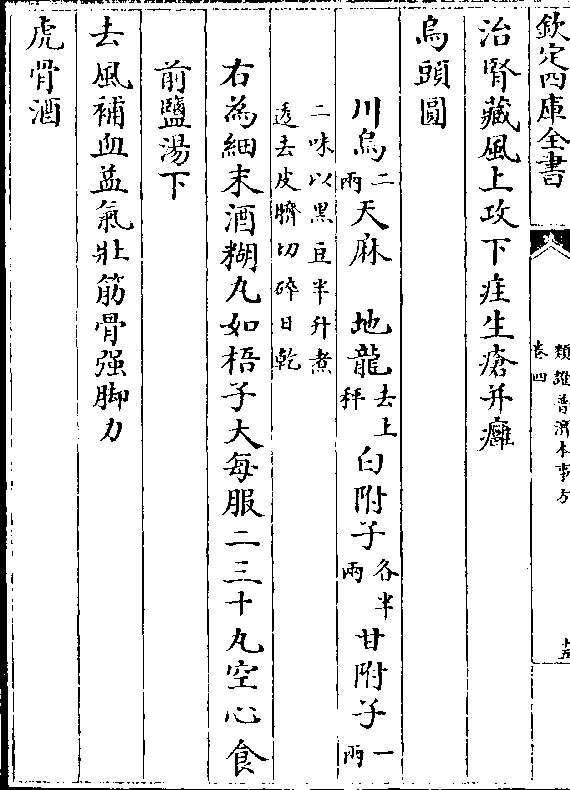 欽定四庫全書
類證普濟本事方
卷四
十五
治腎藏風上攻下疰生瘡并癬
烏頭圓
川烏二兩天麻 地龍去上秤白附子各半兩甘附子一兩
二味以黑豆半升煮
透去皮臍切碎日乾
右為細末酒糊丸如梧子大每服二三十丸空心食
前鹽湯下
去風補血益氣壯筋骨强脚力
虎骨酒